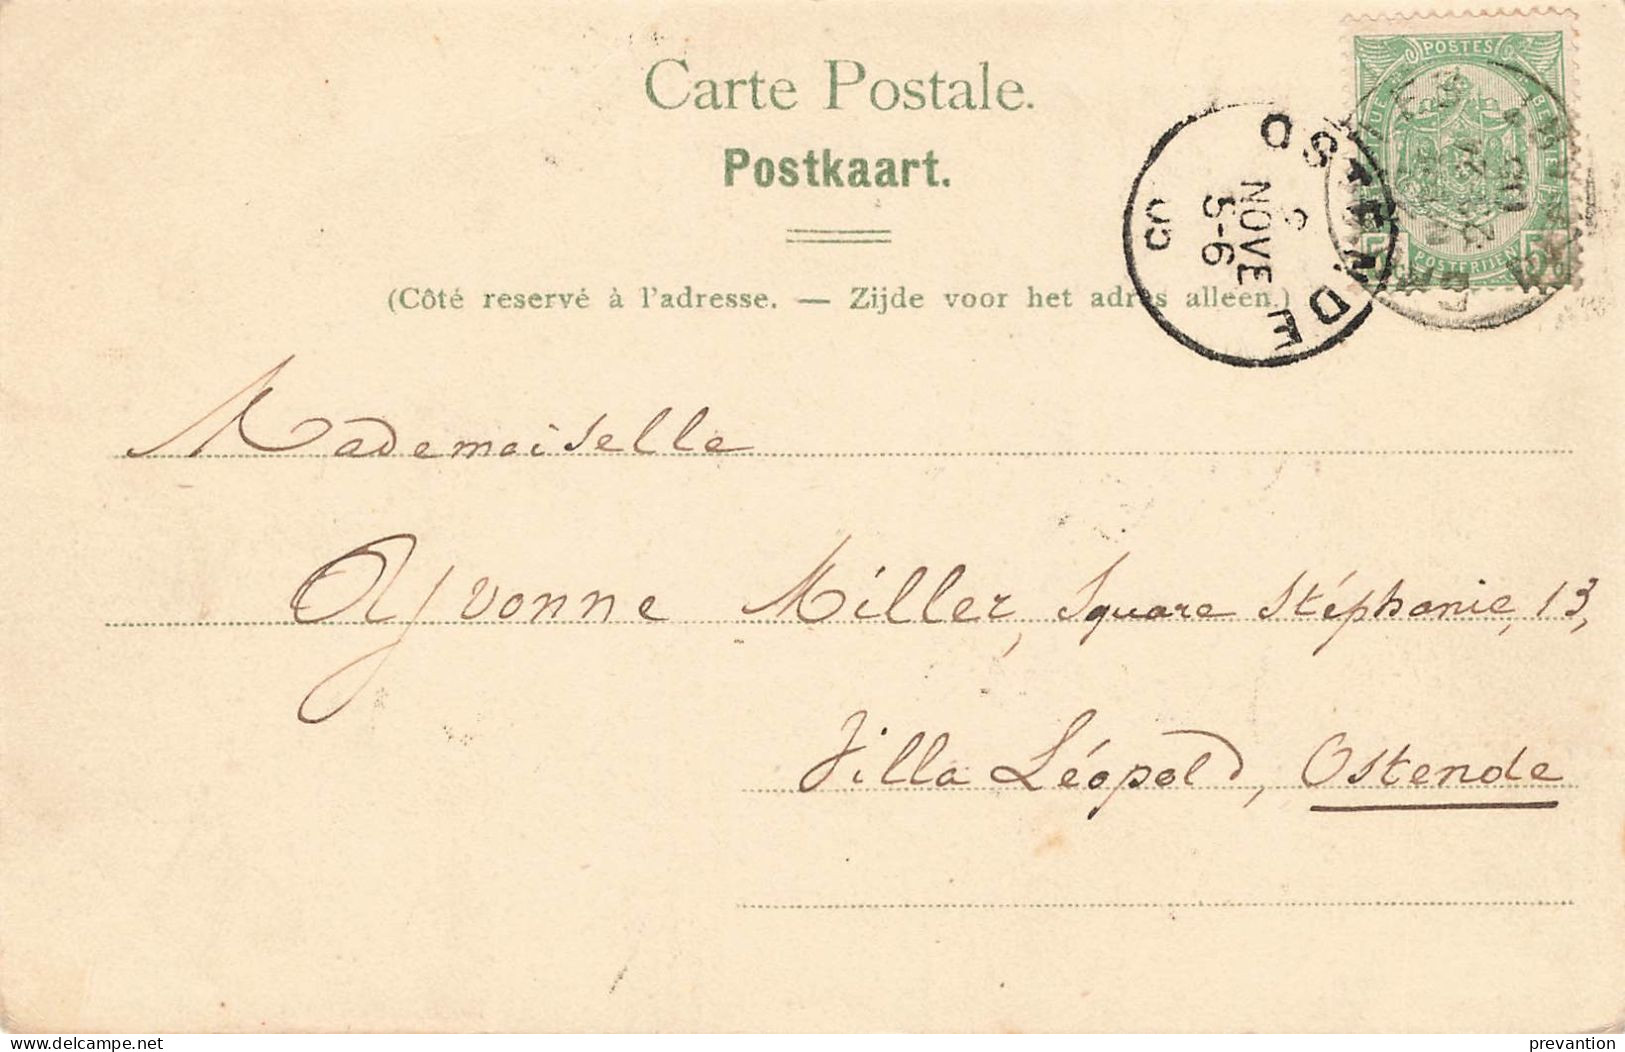 Carte Postale.
Postkaart.
(Côté reservé à l'adresse. — Zijde voor het adres alleen.)
POSTES
POSTERIJEN
5
OSTENDE
NOVE
5-6
Mademoiselle
Yvonne Miller, Square Stéphanie, 13,
Villa Léopold, Ostende
www.delcampe.net
prevantion